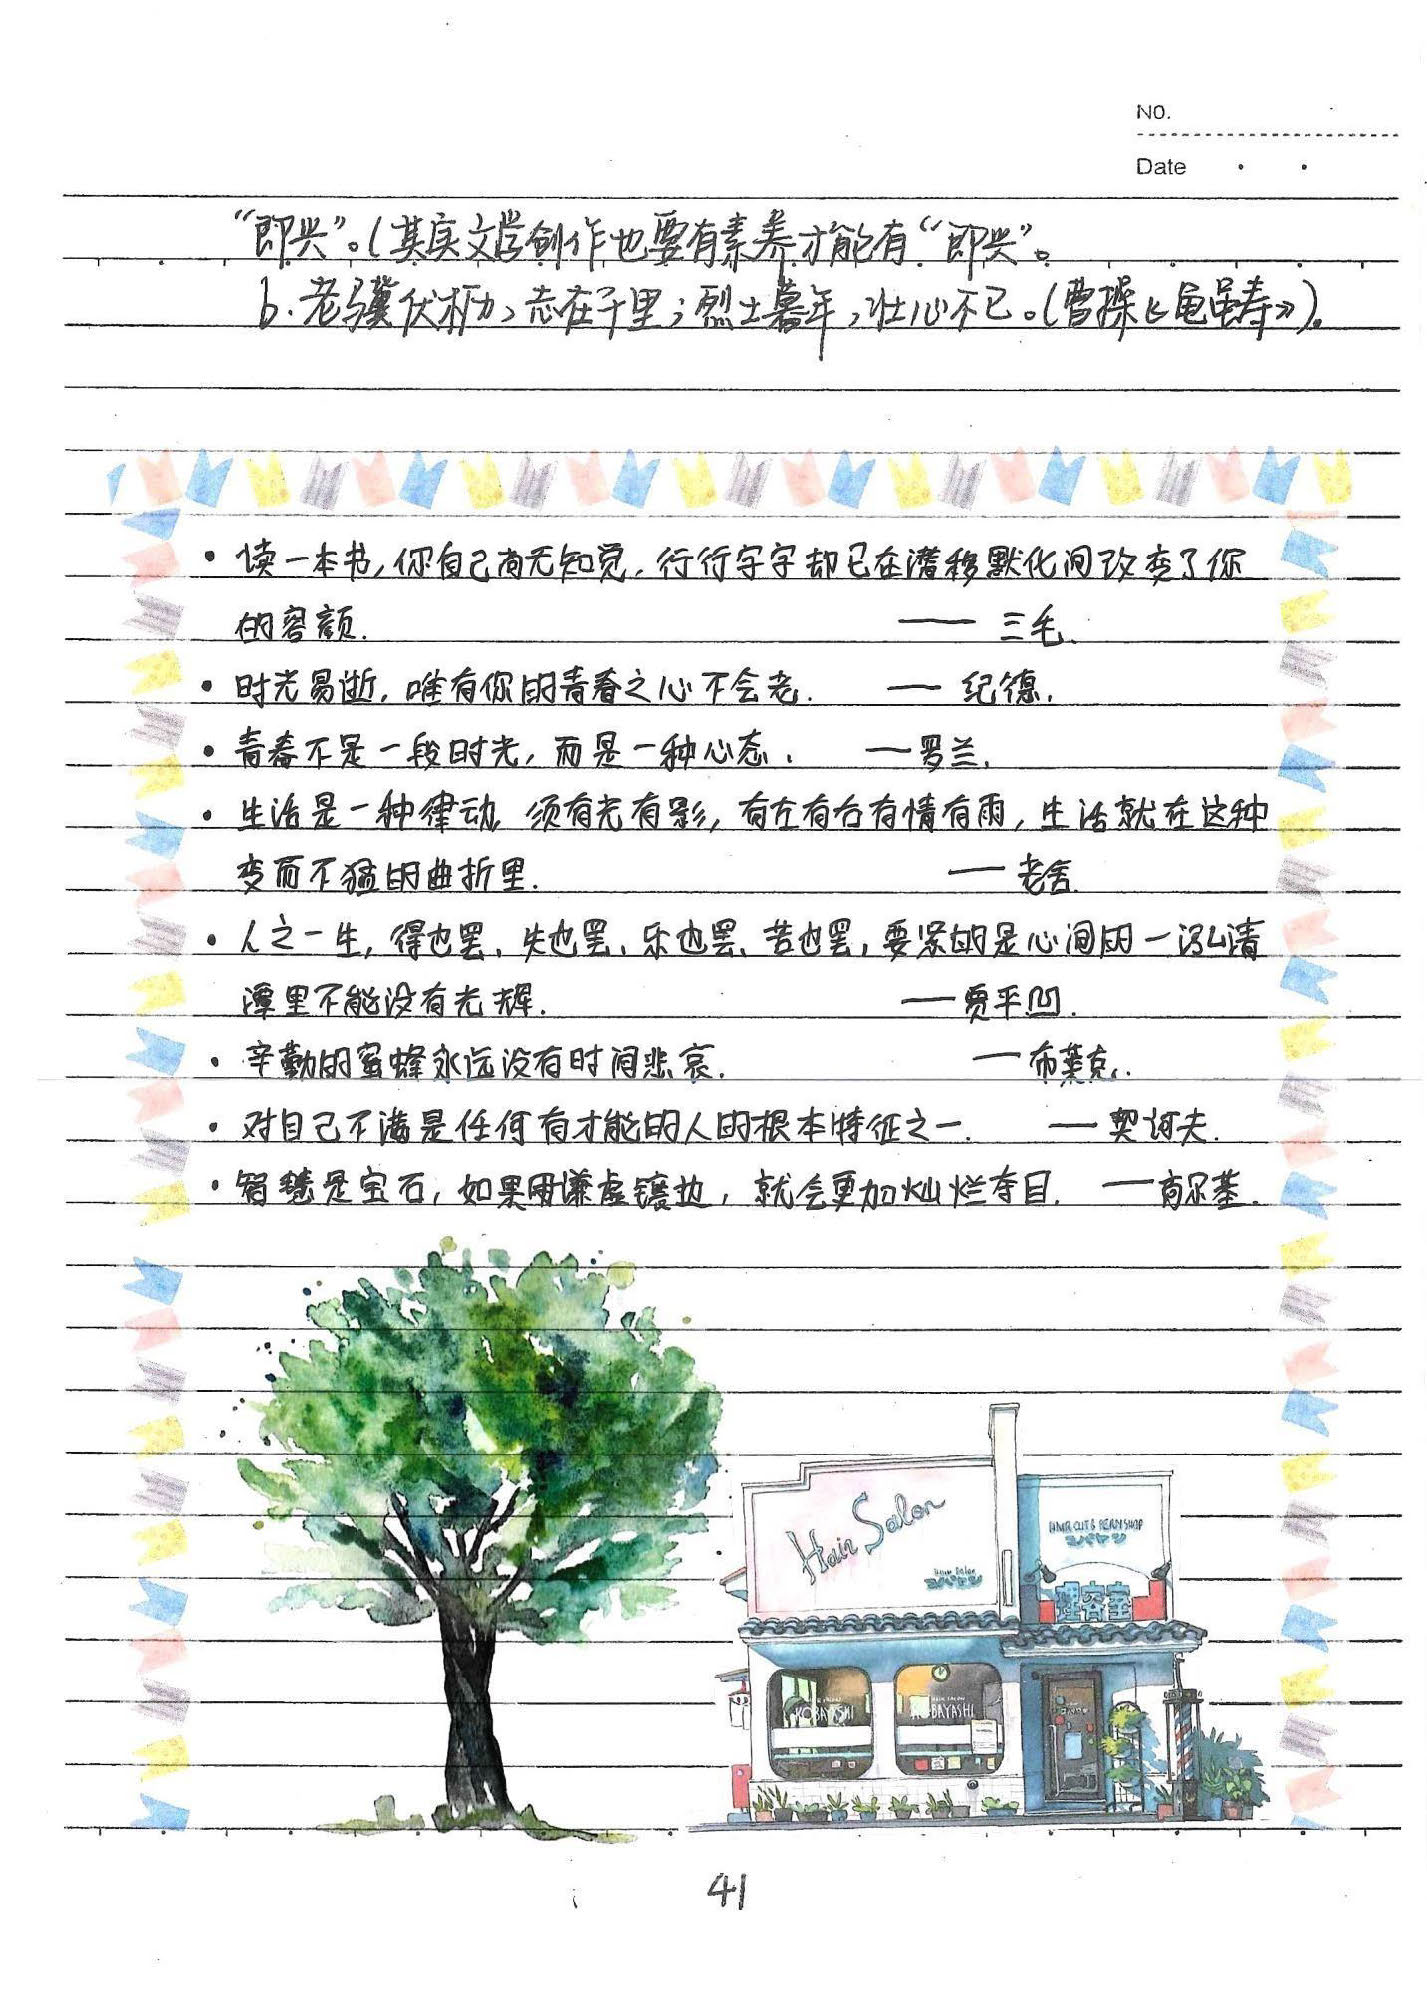 NO.
Date
“即兴”。(其实文学创作也要有素养才能有“即兴”。
b. 老骥伏枥，志在千里；烈士暮年，壮心不已。(曹操《龟虽寿》).
• 读一本书,你自己尚无知觉,行行字字却已在潜移默化间改变了你
的容颜. —— 三毛.
• 时光易逝,唯有你的青春之心不会老. — 纪德.
• 青春不是一段时光,而是一种心态. —罗兰.
• 生活是一种律动,须有光有影,有左有右有情有雨,生活就在这种
变而不猛的曲折里. — 老舍.
• 人之一生,得也罢、失也罢、乐也罢、苦也罢,要紧的是心间的一泓清
潭里不能没有光辉. —贾平凹.
• 辛勤的蜜蜂永远没有时间悲哀. —布莱克.
• 对自己不满是任何有才能的人的根本特征之一. — 契诃夫.
• 智慧是宝石,如果用谦虚镶边,就会更加灿烂夺目. —高尔基.
Hair Salon
Hair Salon
コバヤシ
HAIR CUT & PERM SHOP
コバヤシ
理容室
HAIR SALON
KOBAYASHI
HAIR SALON
KOBAYASHI
41